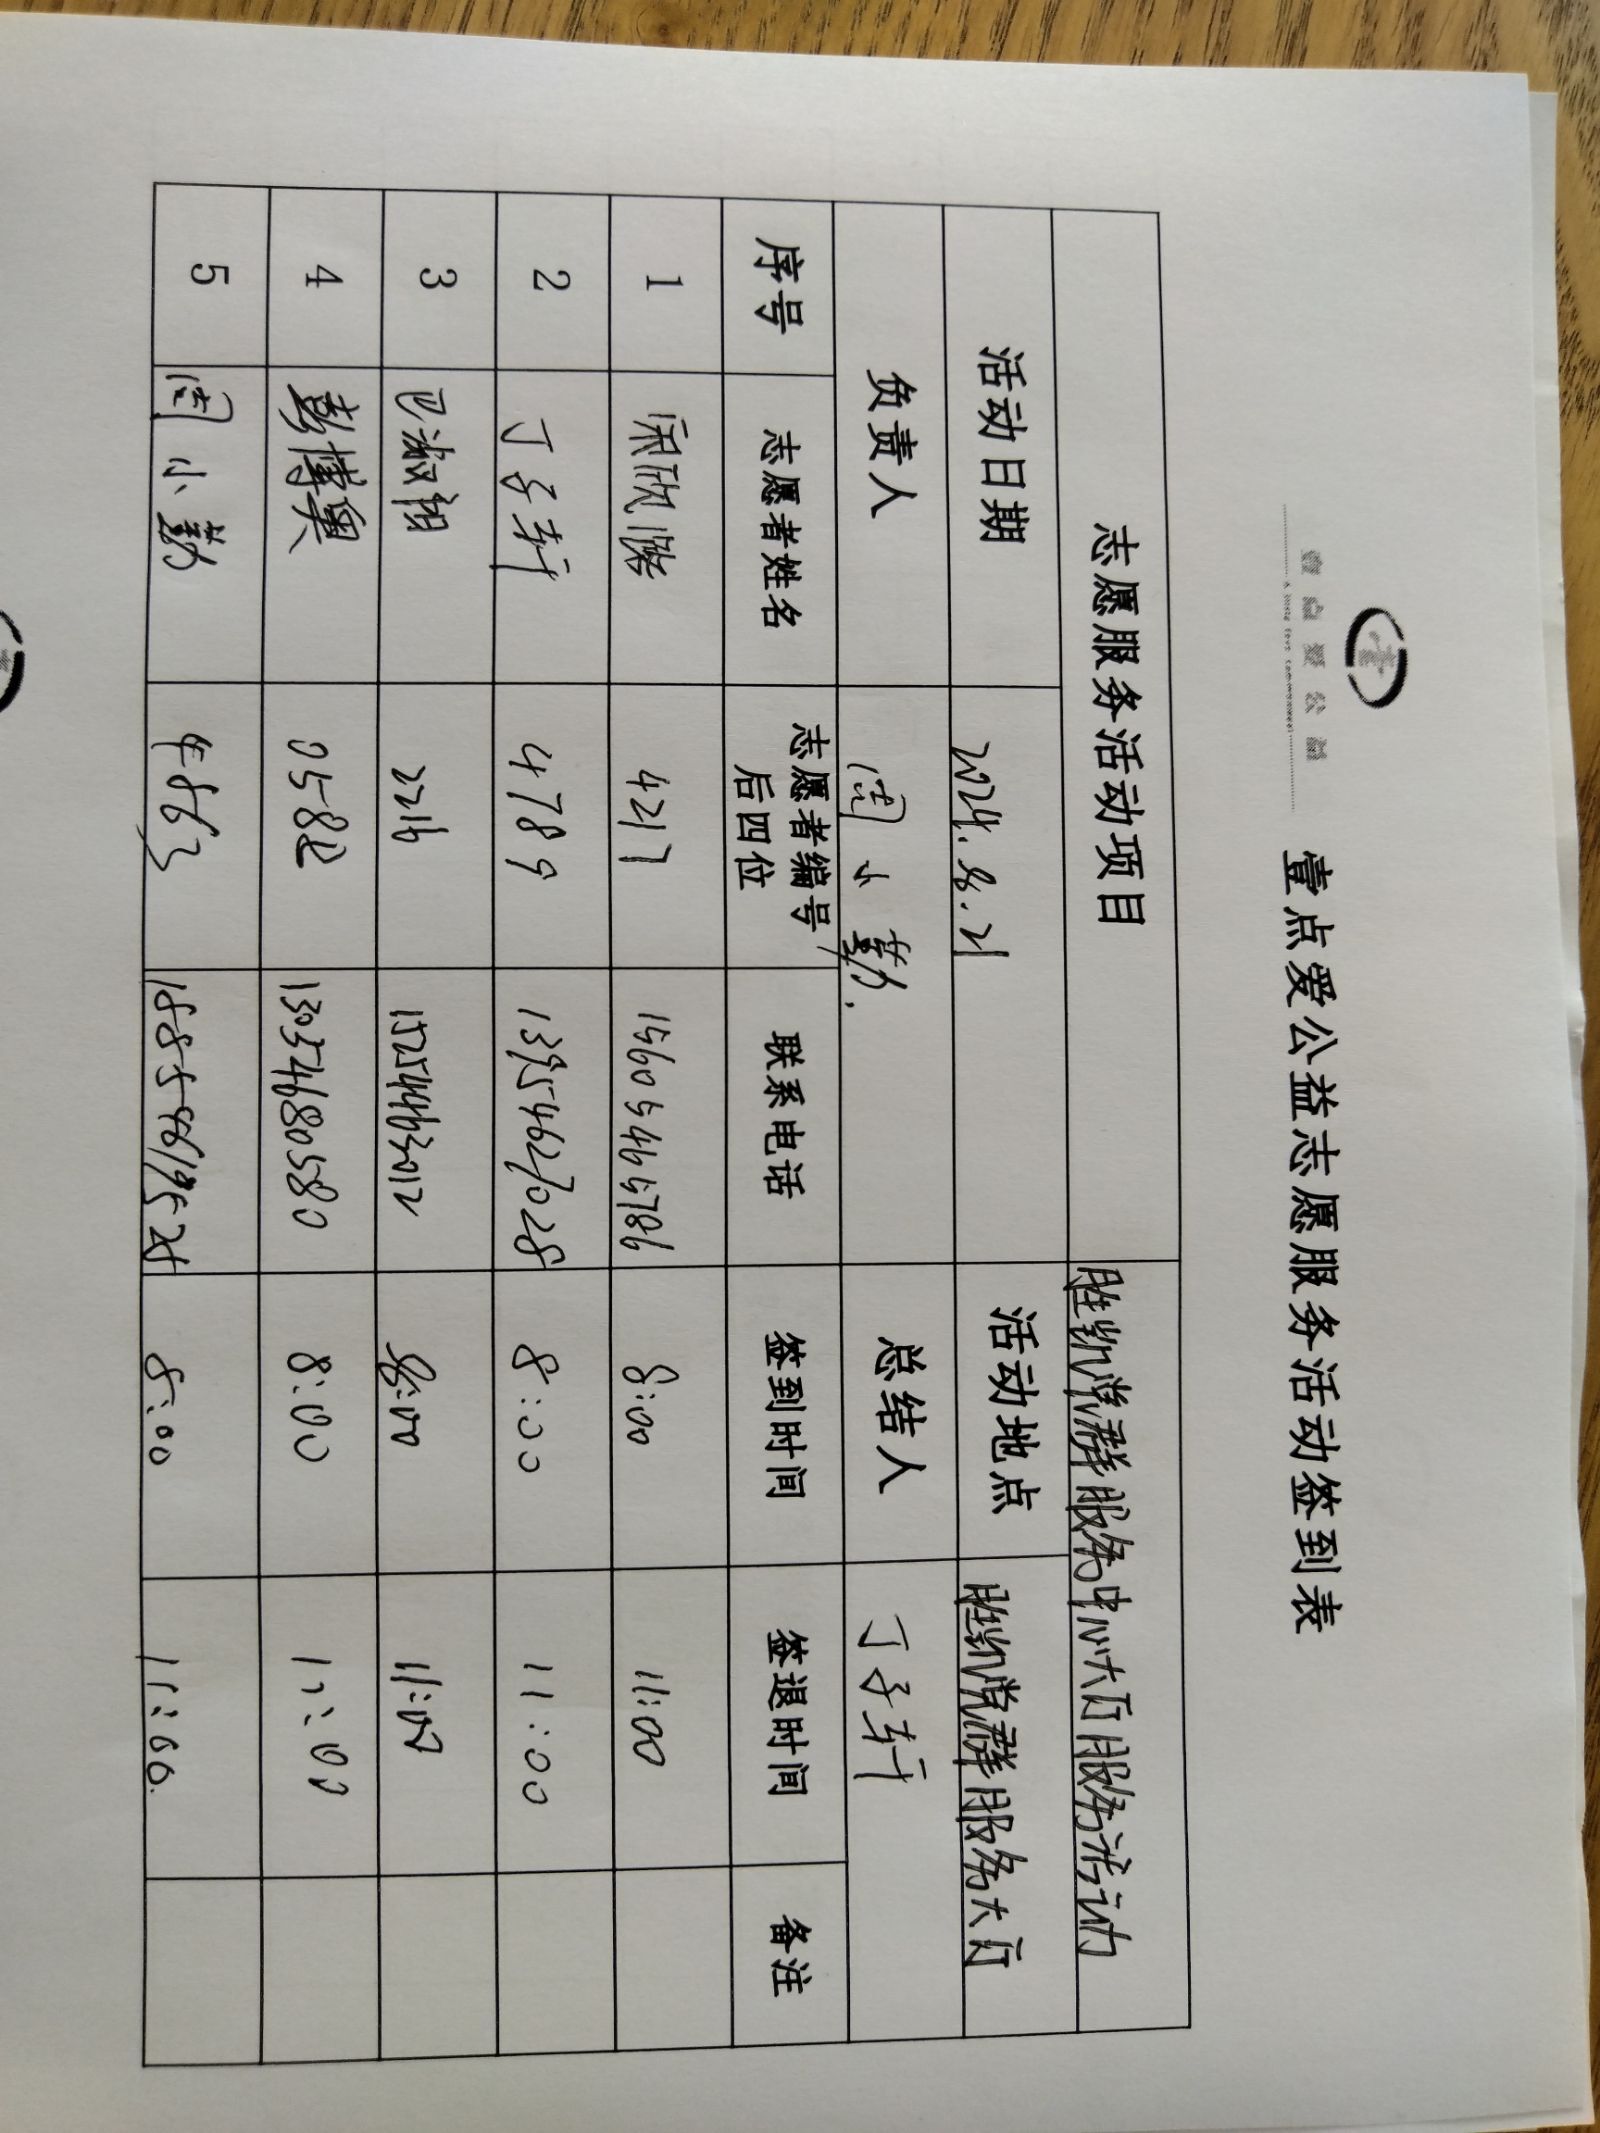 壹点爱公益
壹点爱公益志愿服务活动签到表
志愿服务活动项目 胜凯党群服务中心大厅服务活动
活动日期 2024.8.21 活动地点 胜凯党群服务大厅
负责人 周小勤. 总结人 丁子轩
序号 志愿者姓名 志愿者编号后四位 联系电话 签到时间 签退时间 备注
1 4217 15605465786 8:00 11:00
2 丁子轩 4789 13954627028 8:00 11:00
3 巴淑翔 2216 15254463012 8:00 11:00
4 彭博奥 0582 13054680580 8:00 11:00
5 周小勤 4863 8:00 11:00.